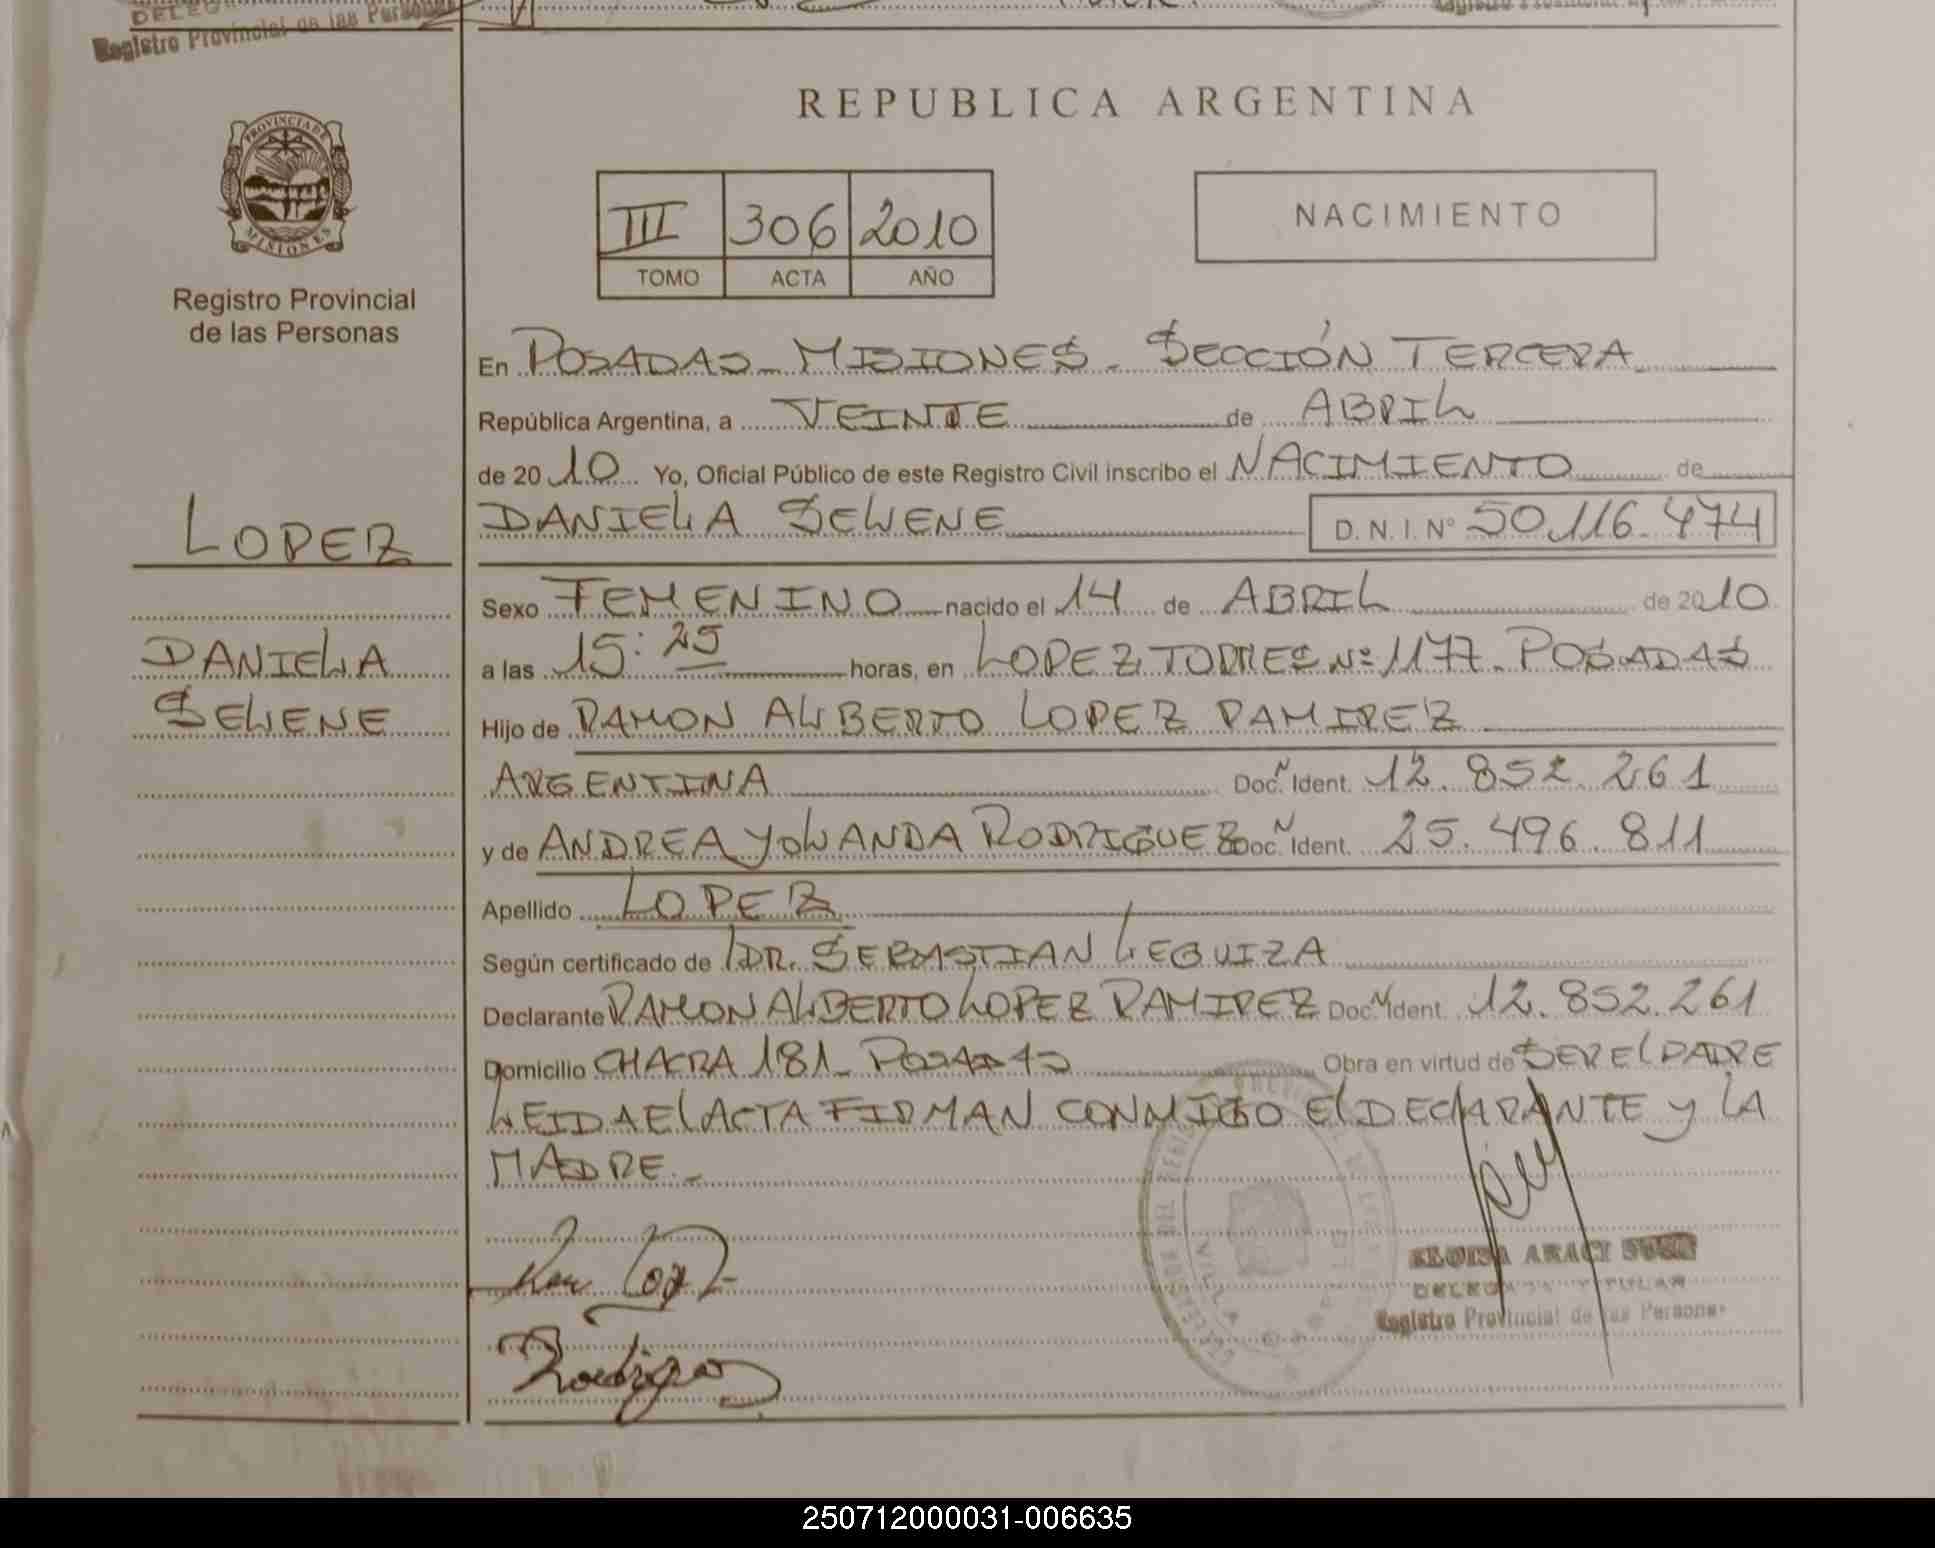 Registro Provincial de las Personas
REPUBLICA ARGENTINA
PROVINCIA DE
MISIONES
Registro Provincial
de las Personas
III 306 2010
TOMO ACTA AÑO
NACIMIENTO
En POSADAS - MISIONES - SECCIÓN TERCERA
República Argentina, a VEINTE de ABRIL
de 2010 Yo, Oficial Público de este Registro Civil inscribo el NACIMIENTO de
LOPEZ
DANIELA SELENE D.N.I. Nº 50.116.474
Sexo FEMENINO nacido el 14 de ABRIL de 2010
DANIELA
a las 15:25 horas, en LOPEZ TORRES Nº 1177 - POSADAS
SELENE
Hijo de RAMON ALBERTO LOPEZ RAMIREZ
ARGENTINA Doc. N Ident. 12.852.261
y de ANDREA YOLANDA RODRIGUEZ Doc. N Ident. 25.496.811
Apellido LOPEZ
Según certificado de DR. SEBASTIAN LEGUIZA
Declarante RAMON ALBERTO LOPEZ RAMIREZ Doc. N Ident. 12.852.261
Domicilio CHACRA 181 - POSADAS Obra en virtud de SER EL PADRE
LEIDA EL ACTA FIRMAN CONMIGO EL DECLARANTE Y LA
MADRE.-
ELOISA ARACI
DELEGADA TITULAR
Registro Provincial de las Personas
250712000031-006635